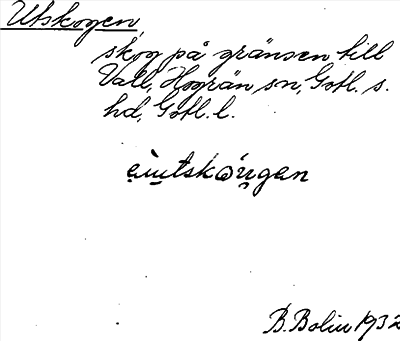 Utskogen,
skog på gränsen till
Vall, Hogrän sn, Gotl. s.
hd, Gotl. l.
B. Bolin 1932